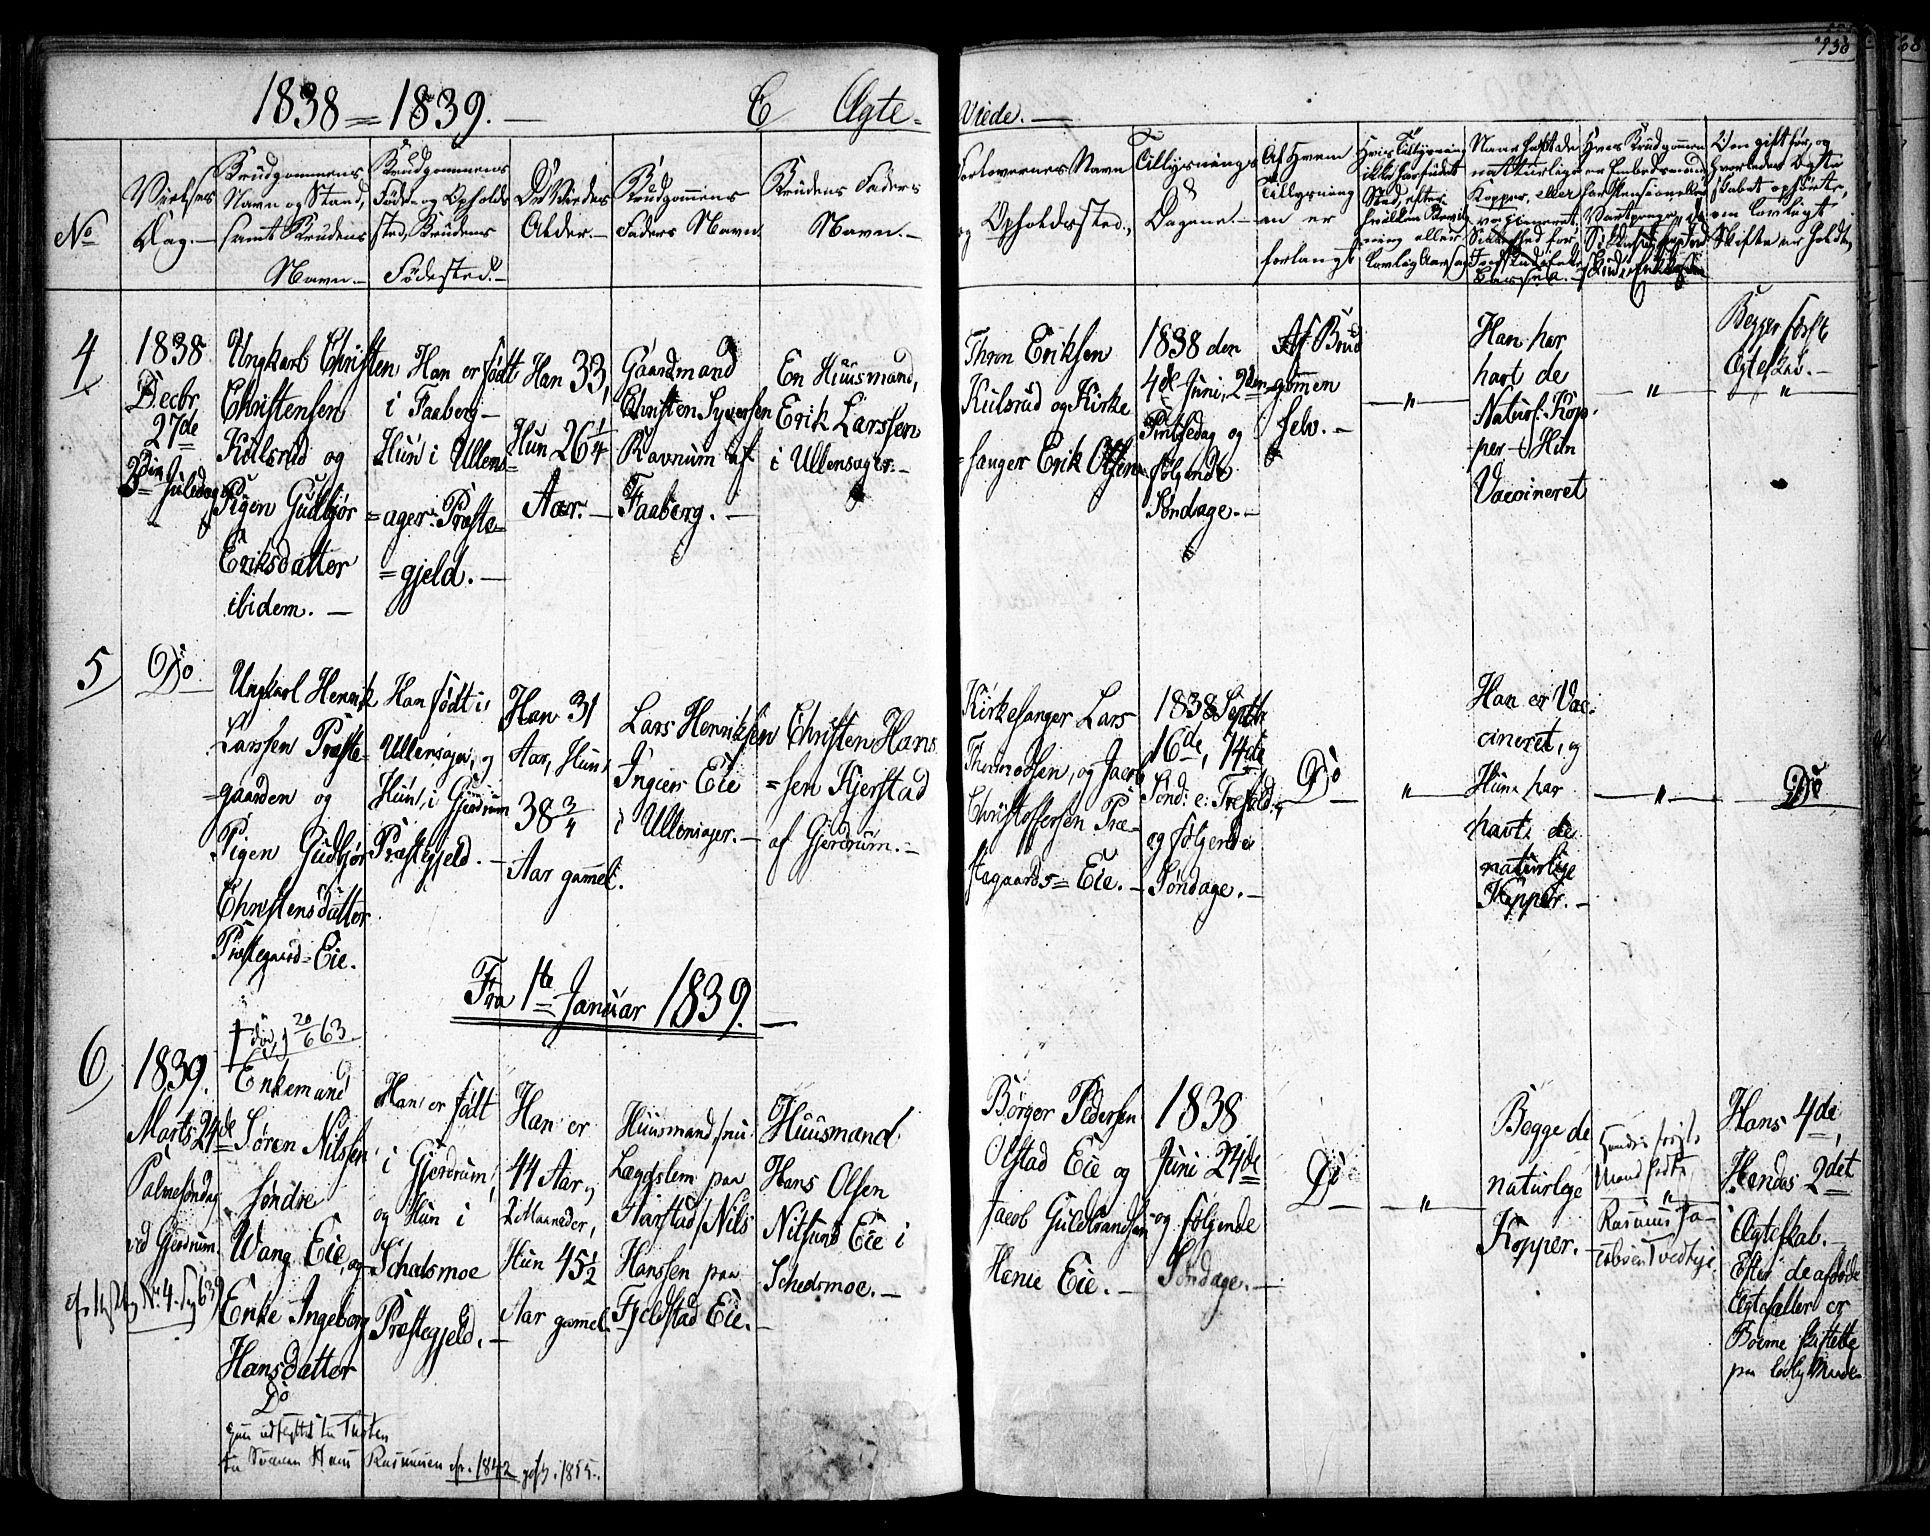 1838 = 1839. — C Ægte- Viede. —
No
Vielses
Dag. —
Brudgommens
Navn og Stand,
samt Brudens
Navn. —
Brudgommens
Føde- og Opholds-
sted, Brudens
Fødested. —
De Viedes
Alder. —
Brudgommens
Faders Navn.
Brudens Faders
Navn. —
Forlovernes Navn
og Opholdssted.
Tillysnings
Dagene. —
Af Hvem
Tillysning
en er
forlangt
Hvis Tillysning
ikke har fundet
Sted, efter
hvilken Bevil-
ning eller
lovlig Aarsag
Naar havt de
naturlige
Kopper, eller
vaccineret,
Om gift før, og
hvorledes Ægte
skabet ophørte,
om lovligt
Skifte er holdt,
4
1838
Decbr
27de
3die Juledag
Ungkarl Christen
Christensen
Kulsrud og
Pigen Gudbjør
Eriksdatter
ibidem. —
Han er født
i Faaberg —
Hun i Ullens
=ager: Præste=
=gjeld. —
Han 33,
Hun 26 1/4
Aar. —
Gaardmand
Christen Syversen
Ravnum af
Faaberg. —
En Huusmand,
Erik Larssen
i Ullensager. —
Thron Eriksen
Kulsrud og Kirke
=sanger Erik Olsen
1838 den
4de Juni, 2den
Pintsedag og
følgende
Søndage. —
Af Brud
gommen
selv. —
— " —
Han har
havt de
Naturl: Kop-
per — Hun
Vaccineret
— " —
Begges første
Ægteskab. —
— " —
5
Do
Ungkarl Henrik
Larssen Præste-
=gaarden og
Pigen Gudbjør
Christensdatter
Præstegaard=Eie.
Han født i
Ullensager, og
Hun i Gjerdrum
Præstegjeld. —
Han 31
Aar, Hun
38 3/4
Aar gammel.
Lars Henriksen
Ingier Eie
i Ullensager. —
Christen Hans
=sen Kjerstad
af Gjerdrum. —
Kirkesanger Lars
Thormodsen, og Jacob
Christoffersen Præ-
stegaards=Eie. —
1838 Septbr
16de, 14de
Sønd: e: Trefold:
og følgende
Søndage. —
Do
— " —
Han er Vac-
cineret, og
Hun har
havt de
naturlige
Kopper. —
— " —
Do
Fra 1te Januar 1839. —
6
1839.
Marts 24de
Palmesøndag
ved Gjerdrum.
† død 20/6 63
Enkemand
Søren Nilsen
søndre
Wang Eie, og
Enke Ingeborg
Hansdatter
Do
Rasmusen cfr. 1842
Han er født
i Gjerdrum,
og Hun i
Schedsmoe
Præstegjeld. —
Han er
44 Aar,
2 Maaneder,
Hun 45 1/2
Aar gammel.
Huusmand, nu
Lægdslem paa
Harstad / Nils
Hanssen paa
Fjeldstad Eie. —
Huusmand
Hans Olsen
Nitsund Eie i
Schedsmoe. —
Børger Pedersen
Olstad Eie og
Jacob Guldbrandsen
Henie Eie. —
1838
Juni 24de
og følgende
Søndage. —
Do
— " —
Begge de
naturlige
Kopper. —
Hendes første
Mand hedte
"
Rasmus Ja-
cobsen Tvedteje.
Hans 4de,
Hendes 2det
Ægteskab. —
Efter de afdøde
Ægtefæller er
Boerne skiftede
paa lovlig Maade